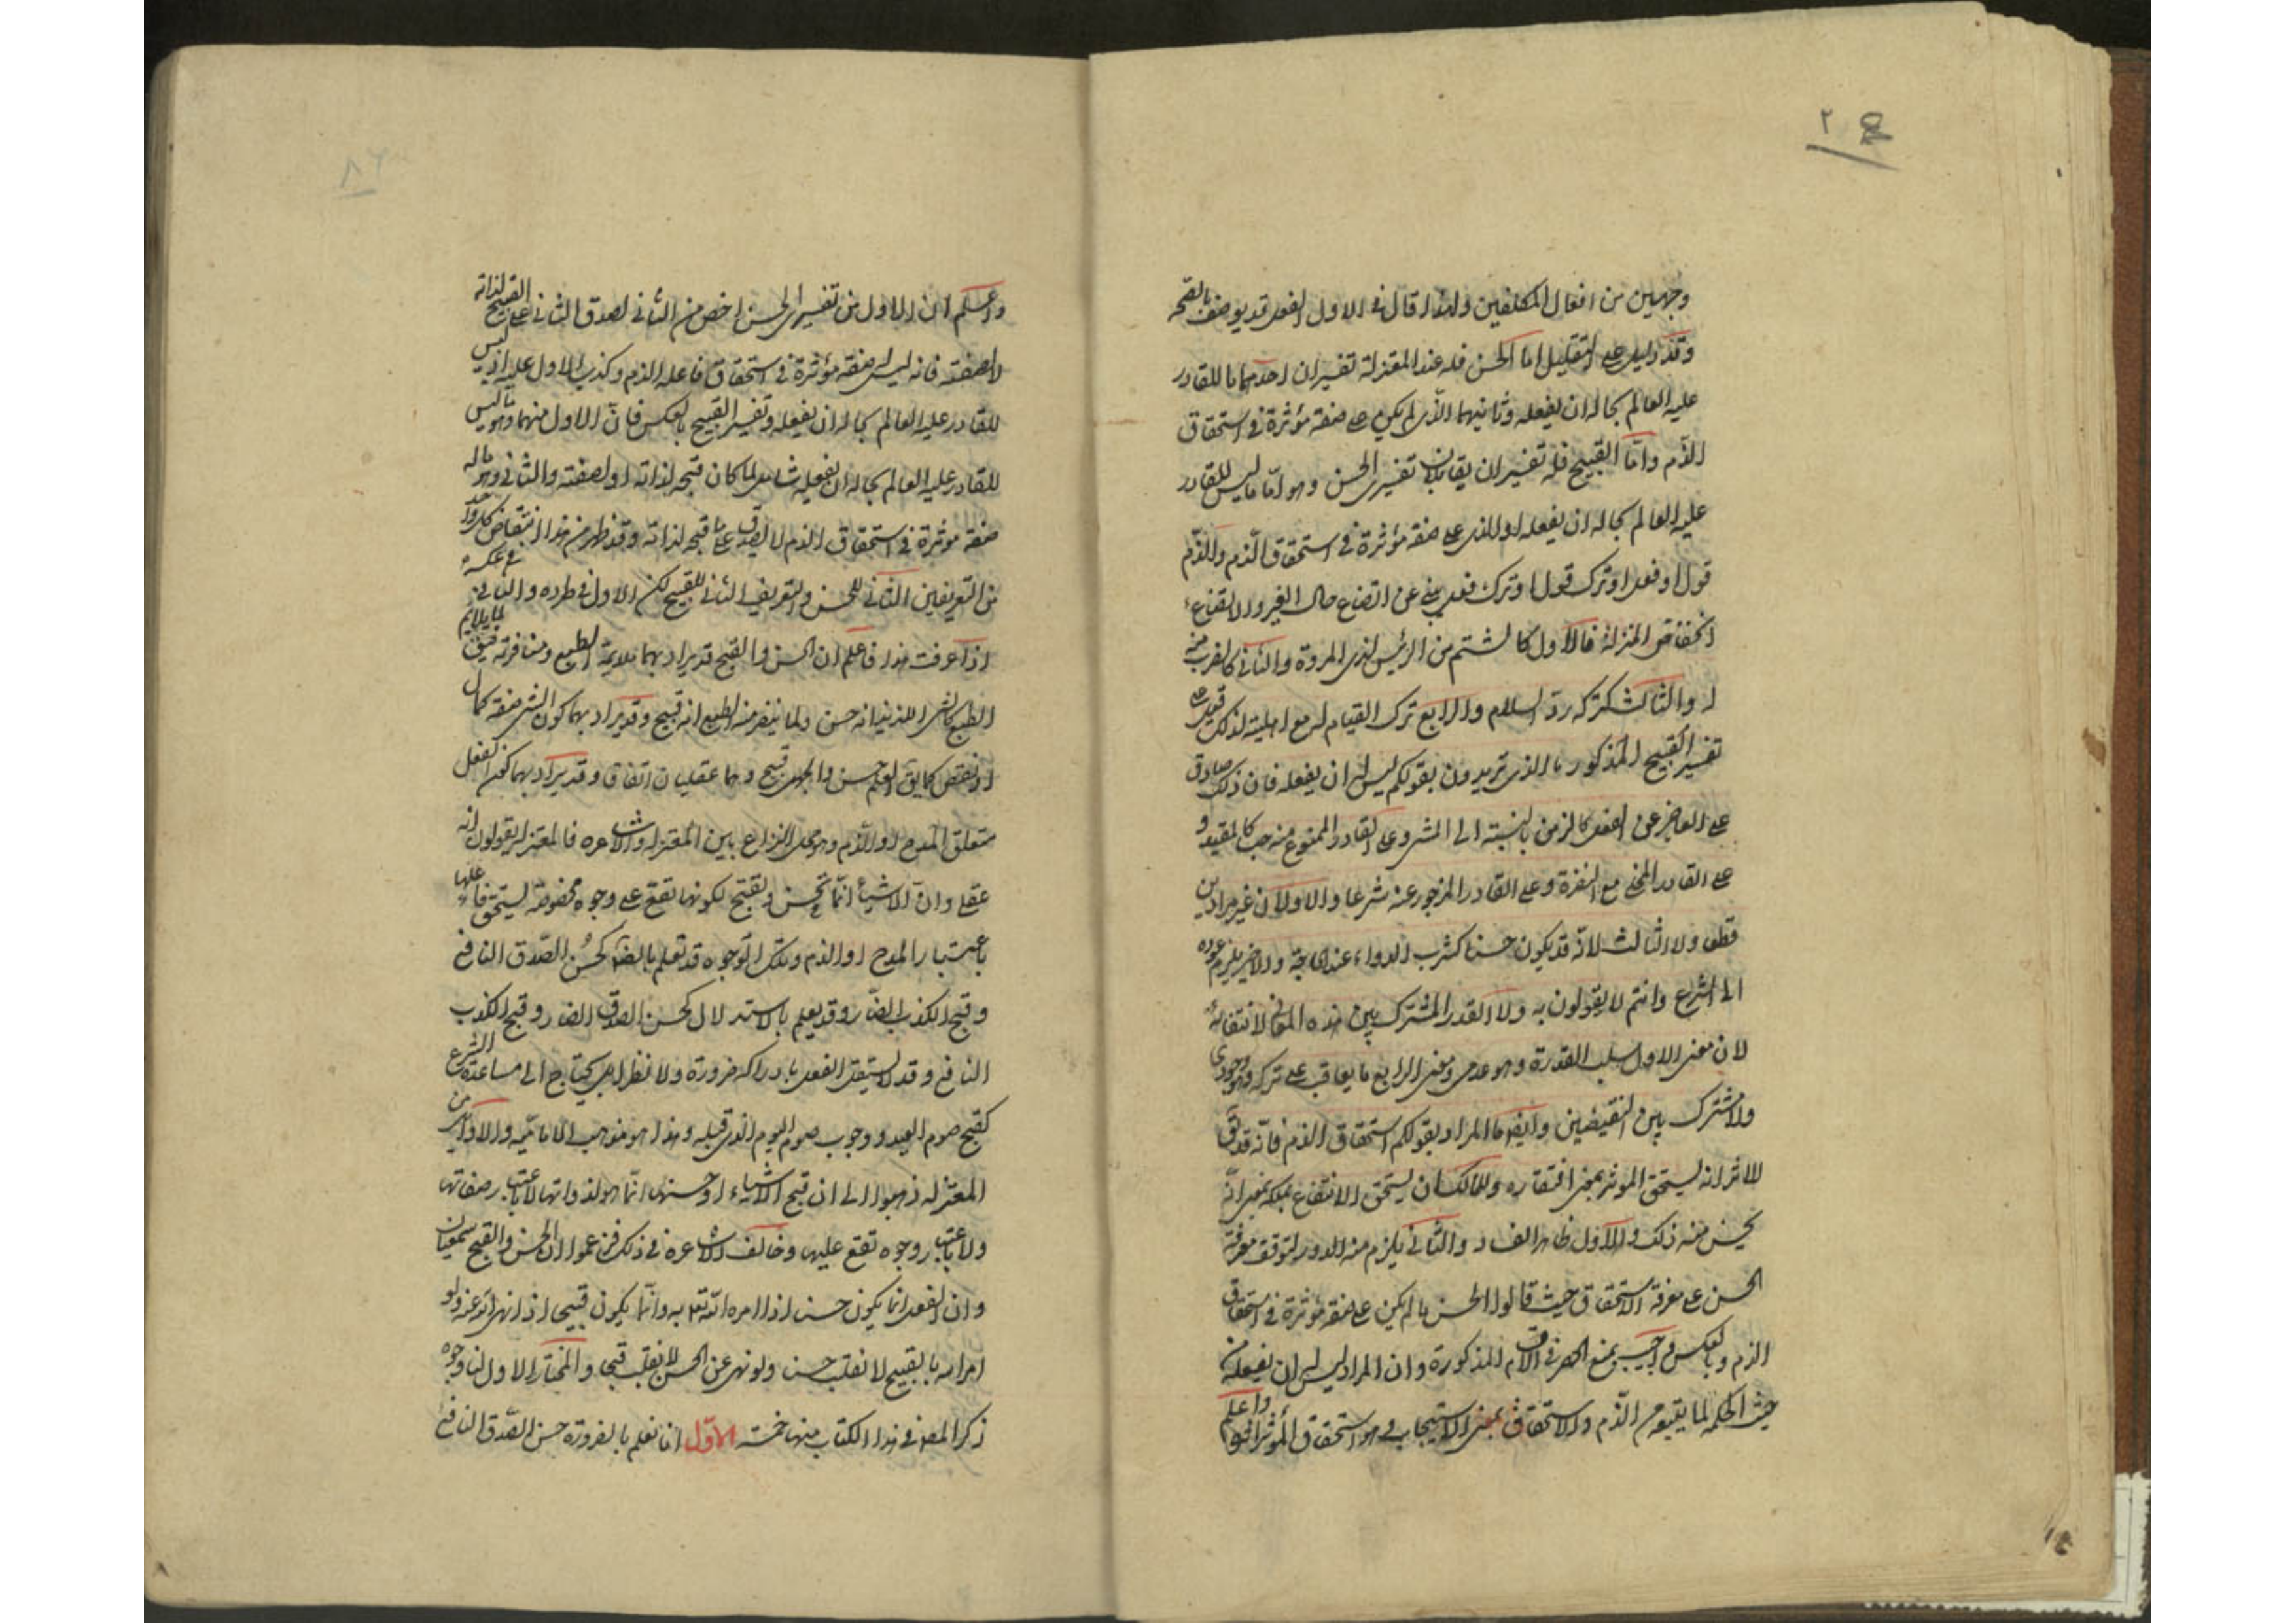 ٢
وجهين من افعال المكلفين ولهذا قال في الاول الفعل قد يوصف بالقبح
وقد دليل على التقليل اما الحسن فله عند المعتزلة تفسيران احدهما ما للقادر
عليه العالم بحاله ان يفعله وثانيهما الذي لم يكن على صفة مؤثرة في استحقاق
الذم واما القبيح فله تفسيران يقابلان تفسيري الحسن وهو اما ما ليس للقادر
عليه العالم بحاله ان يفعله او الذي على صفة مؤثرة في استحقاق الذم والذم
قول او فعل او ترك قول او ترك فعل ينبئ عن اتضاع حال الغير والاتضاع
انخفاض المنزلة فالاول كالشتم من الرئيس لذي المروة والثاني كالضرب منه
له والثالث كتركه رد السلام والرابع ترك القيام له مع اهليته لذلك قيل على
تفسير القبيح المذكور ما الذي تريدون بقولكم ليس له ان يفعله فان ذلك صادق
على العاجز عن الفعل كالزمن بالنسبة الى المشي وعلى القادر الممنوع منه حسا كالمقيد و
على القادر المخلى مع النفرة وعلى القادر المزجور عنه شرعا والاولان غير مرادين
قطعا ولا الثالث لانه قد يكون حسنا كشرب الدواء عند الحاجة والاخير يلزم عوده
الى الشرع وانتم لا يقولون به ولا القدر المشترك بين هذه المعاني لانتفائه
لان معنى الاول سلب القدرة وهو عدمي ومعنى الرابع ما يعاقب على تركه وهو وجودي
ولا مشترك بين النقيضين وايضا ما المراد بقولكم استحقاق الذم فانه قد يق
للاثر انه يستحق الموثر بمعنى افتقاره وللمالك ان يستحق الانتفاع بملكه بمعنى انه
يحسن منه ذلك والاول ظاهر الفساد والثاني يلزم منه الدور لتوقف معرفة
الحسن على معرفة الاستحقاق حيث قالوا الحسن ما لم يكن على صفة مؤثرة في استحقاق
الذم وبالعكس واجيب بمنع الحصر في الاقسام المذكورة وان المراد ليس له ان يفعله من
حيث الحكمة لما يتبعه من الذم والاستحقاق بمعنى الاستيجاب وهو استحقاق المؤثر
واعلم
واعلم ان الاول من تفسيري الحسن اخص من الثاني لصدق الثاني على القبيح لذاته
لا لصفته فانه ليس له صفة مؤثرة في استحقاق فاعله الذم وكذب الاول عليه اذ ليس
للقادر عليه العالم بحاله ان يفعله وتفسير القبيح بالعكس فان الاول منهما وهو ما ليس
للقادر عليه العالم بحاله ان يفعله شامل لما كان قبحه لذاته او لصفته والثاني وهو ما له
صفة موثرة في استحقاق الذم لا يصدق على ما قبحه لذاته وقد ظهر من هذا انتقاض كل واحد
من التعريفين الثاني للحسن والتعريف الثاني للقبيح لكن الاول في طرده والثاني في عكسه
اذا عرفت هذا فاعلم ان الحسن والقبح قد يراد بهما ملايمة الطبع ومنافرته فيق لما يلايم
الطبع كالشيء اللذيذ انه حسن ولما ينفر منه الطبع انه قبيح وقد يراد بهما كون الشئ صفة كمال
او نقص كما يق العلم حسن والجهل قبيح وهما عقليان اتفاقا وقد يراد بهما كون الفعل
متعلق المدح او الذم وهو محل النزاع بين المعتزلة والاشاعره فالمعتزلة يقولون انه
عقلي وان الاشياء انما تحسن وتقبح لكونها تقع على وجوه مخصوصة يستحق فاعلها
باعتبارها المدح او الذم وتلك الوجوه قد تعلم بالضرورة كحسن الصدق النافع
وقبح الكذب الضار وقد يعلم بالاستدلال كحسن الصدق الضار وقبح الكذب
النافع وقد لا يستقل العقل بادراكه ضرورة ولا نظرا بل يحتاج الى مساعدة الشرع
كقبح صوم العيد ووجوب صوم اليوم الذي قبله وهذا هو مذهب الامامية والاوائل من
المعتزلة ذهبوا الى ان قبح الاشياء او حسنها انما هو لذواتها لا باعتبار صفاتها
ولا باعتبار وجوه تقع عليها وخالف الاشاعرة في ذلك فزعموا ان الحسن والقبح سمعيان
وان الفعل انما يكون حسنا اذا امره الله تعالى به وانما يكون قبيحا اذا نهى الله عنه ولو
امر الله بالقبيح لانقلب حسنا ولو نهى عن الحسن لانقلب قبيحا والمختار الاول لنا وجوه
ذكر المص في هذا الكتاب منها خمسة الاول انا نعلم بالضرورة حسن الصدق النافع